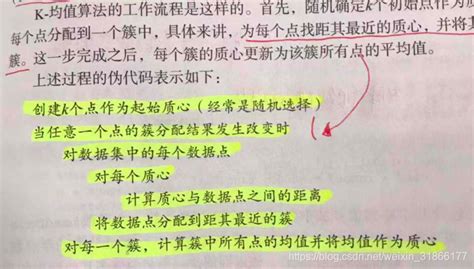 K-均值算法的工作流程是这样的。首先，随机确定k个初始点作为质
每个点分配到一个簇中，具体来讲，为每个点找距其最近的质心，并将其
簇。这一步完成之后，每个簇的质心更新为该簇所有点的平均值。
上述过程的伪代码表示如下：
创建k个点作为起始质心（经常是随机选择）
当任意一个点的簇分配结果发生改变时
对数据集中的每个数据点
对每个质心
计算质心与数据点之间的距离
将数据点分配到距其最近的簇
对每一个簇，计算簇中所有点的均值并将均值作为质心
https://blog.csdn.net/weixin_31866177